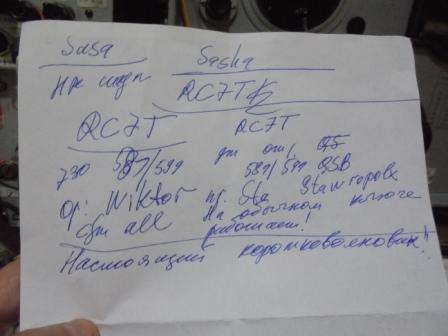 Sasa Sasha
RC7TK
RC7T RC7T
730 589/599 589/599 QSB
op: Wiktor nr. Sta Stawropolx
cfm all На обычном ключе
работает!
Настоящий коротковолновик!